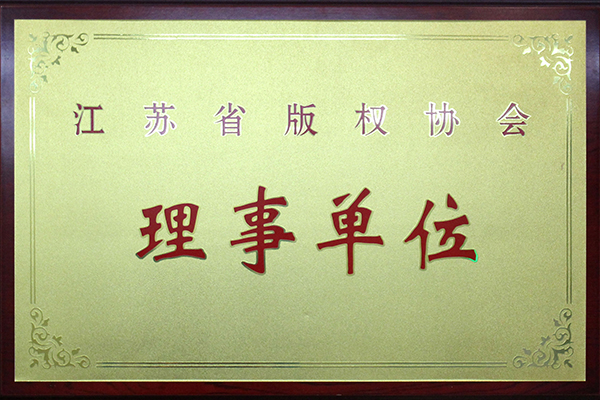 江苏省版权协会
理事单位